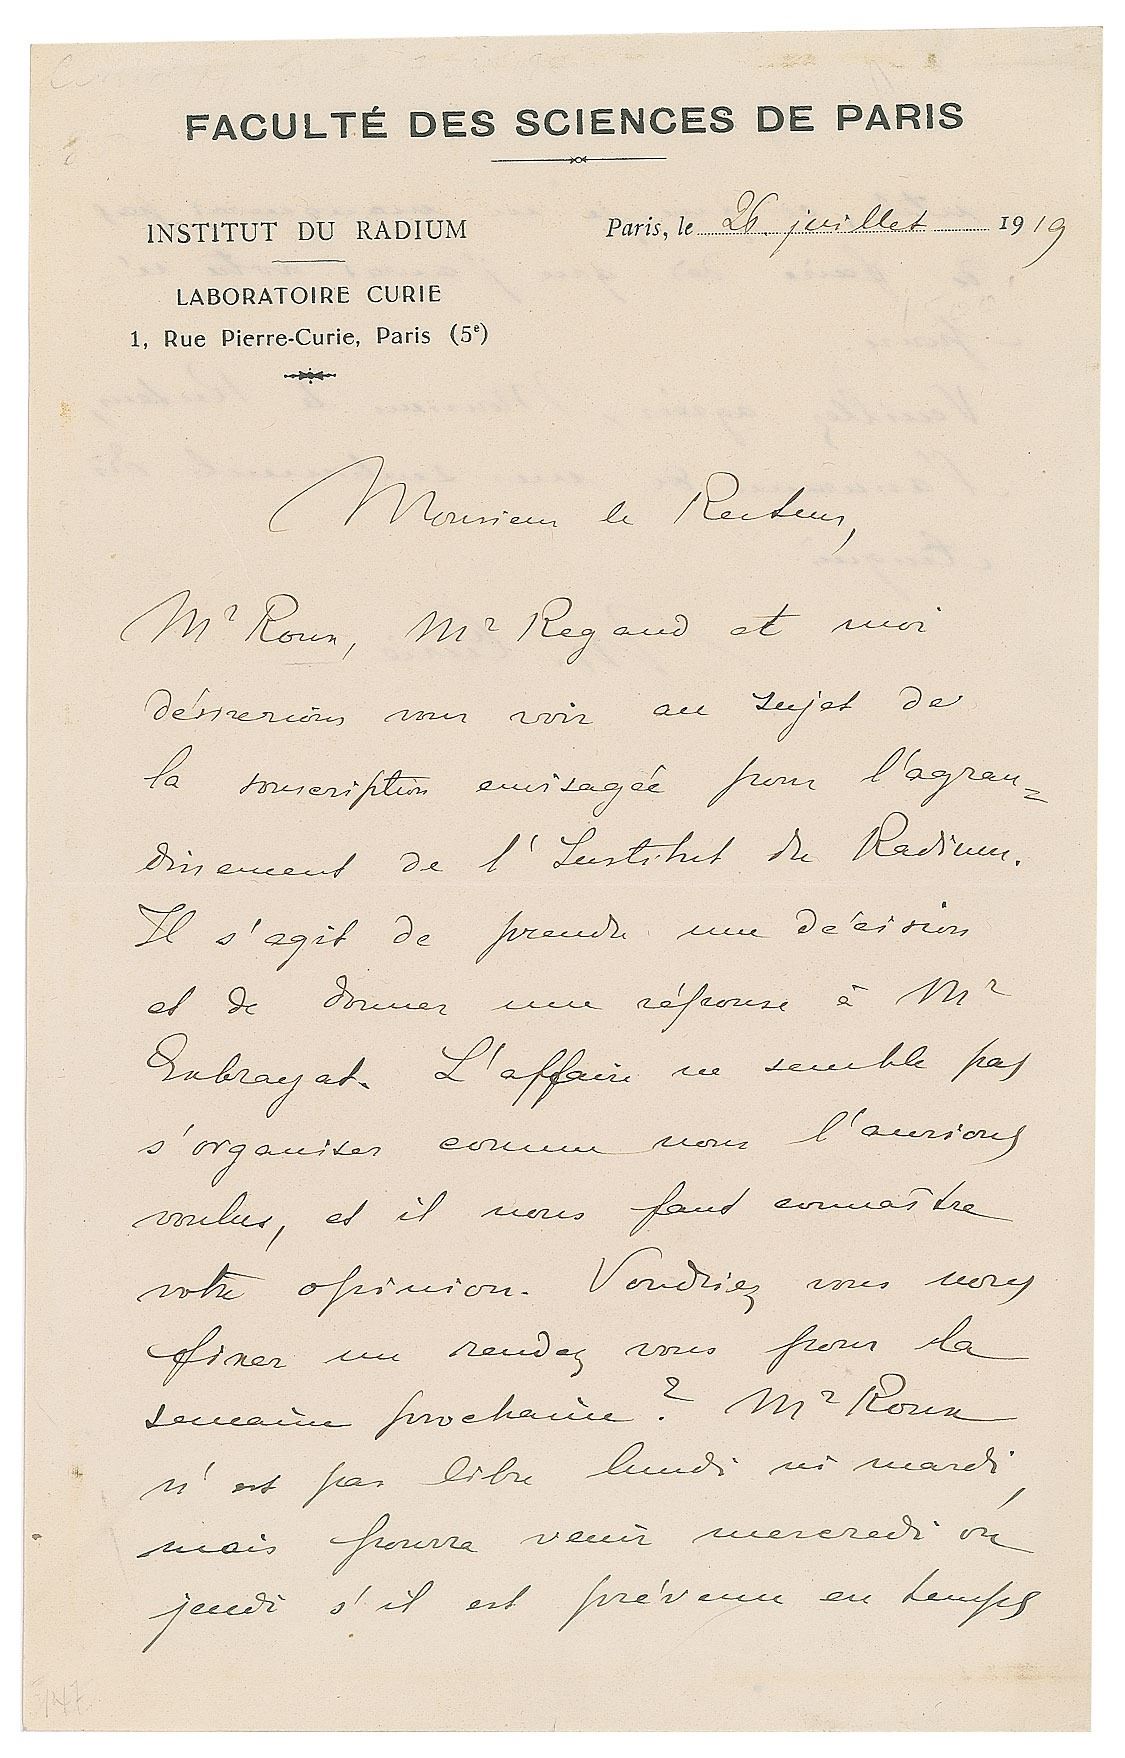 FACULTÉ DES SCIENCES DE PARIS
INSTITUT DU RADIUM
Paris, le 26 juillet 1919
LABORATOIRE CURIE
1, Rue Pierre-Curie, Paris (5e)
Monsieur le Recteur,
Mr Roux, Mr Regaud et moi
désirerions vous voir au sujet de
la souscription envisagée pour l'agran=
dissement de l'Institut du Radium.
Il s'agit de prendre une décision
et de donner une réponse à Mr
Exbrayat. L'affaire ne semble pas
s'organiser comme nous l'aurions
voulus, et il nous faut connaître
votre opinion. Voudriez vous nous
fixer un rendez vous pour la
semaine prochaine? Mr Roux
n'est pas libre lundi ni mardi,
mais pourra venir mercredi ou
jeudi s'il est prévenu en temps